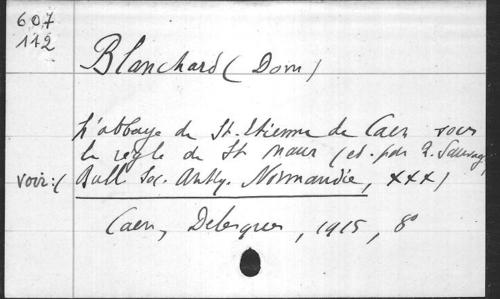 607
112
Blanchard (Dom)
L'abbaye de St. Etienne de Caen sous
la règle de St Maur (ed. par R. Sauvage
voir: (Bull Soc. Antiq. Normandie, XXX)
Caen, Delesques, 1915, 8°